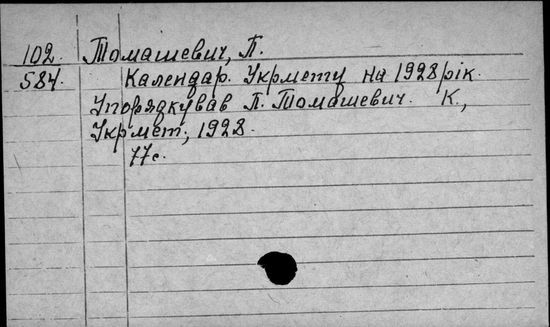 102. Томашевич, П.
584. Календар. Укрмету на 1928 рік.
Упорядкував П. Томашевич. К.,
Укрмет, 1928.
77с.